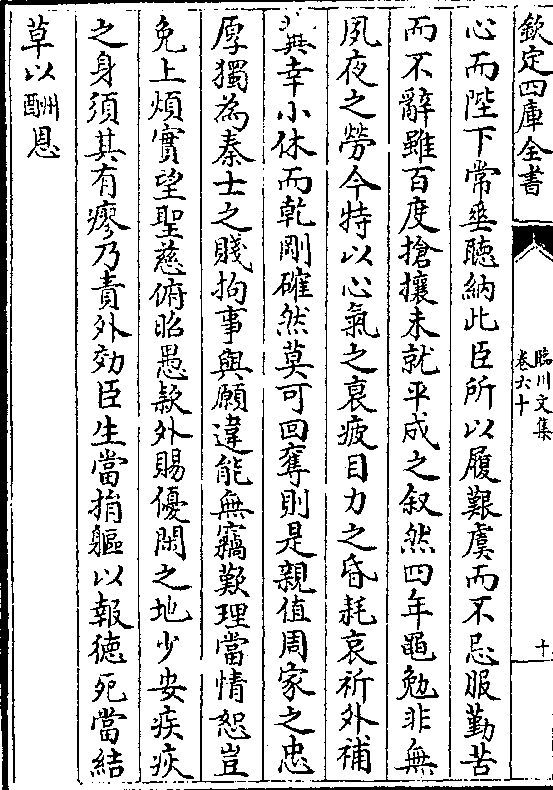 欽定四庫全書
臨川文集
卷六十
十
心而陛下常垂聽納此臣所以履艱虞而不忌服勤苦
而不辭雖百度搶攘未就平成之叙然四年黽勉非無
夙夜之勞今特以心氣之衰疲目力之昏耗哀祈外補
冀幸小休而乾剛確然莫可回奪則是親值周家之忠
厚獨為秦士之賤拘事與願違能無竊歎理當情恕豈
免上煩實望聖慈俯昭愚款外賜優閑之地少安疾疢
之身須其有瘳乃責外效臣生當捐軀以報徳死當結
草以酬恩